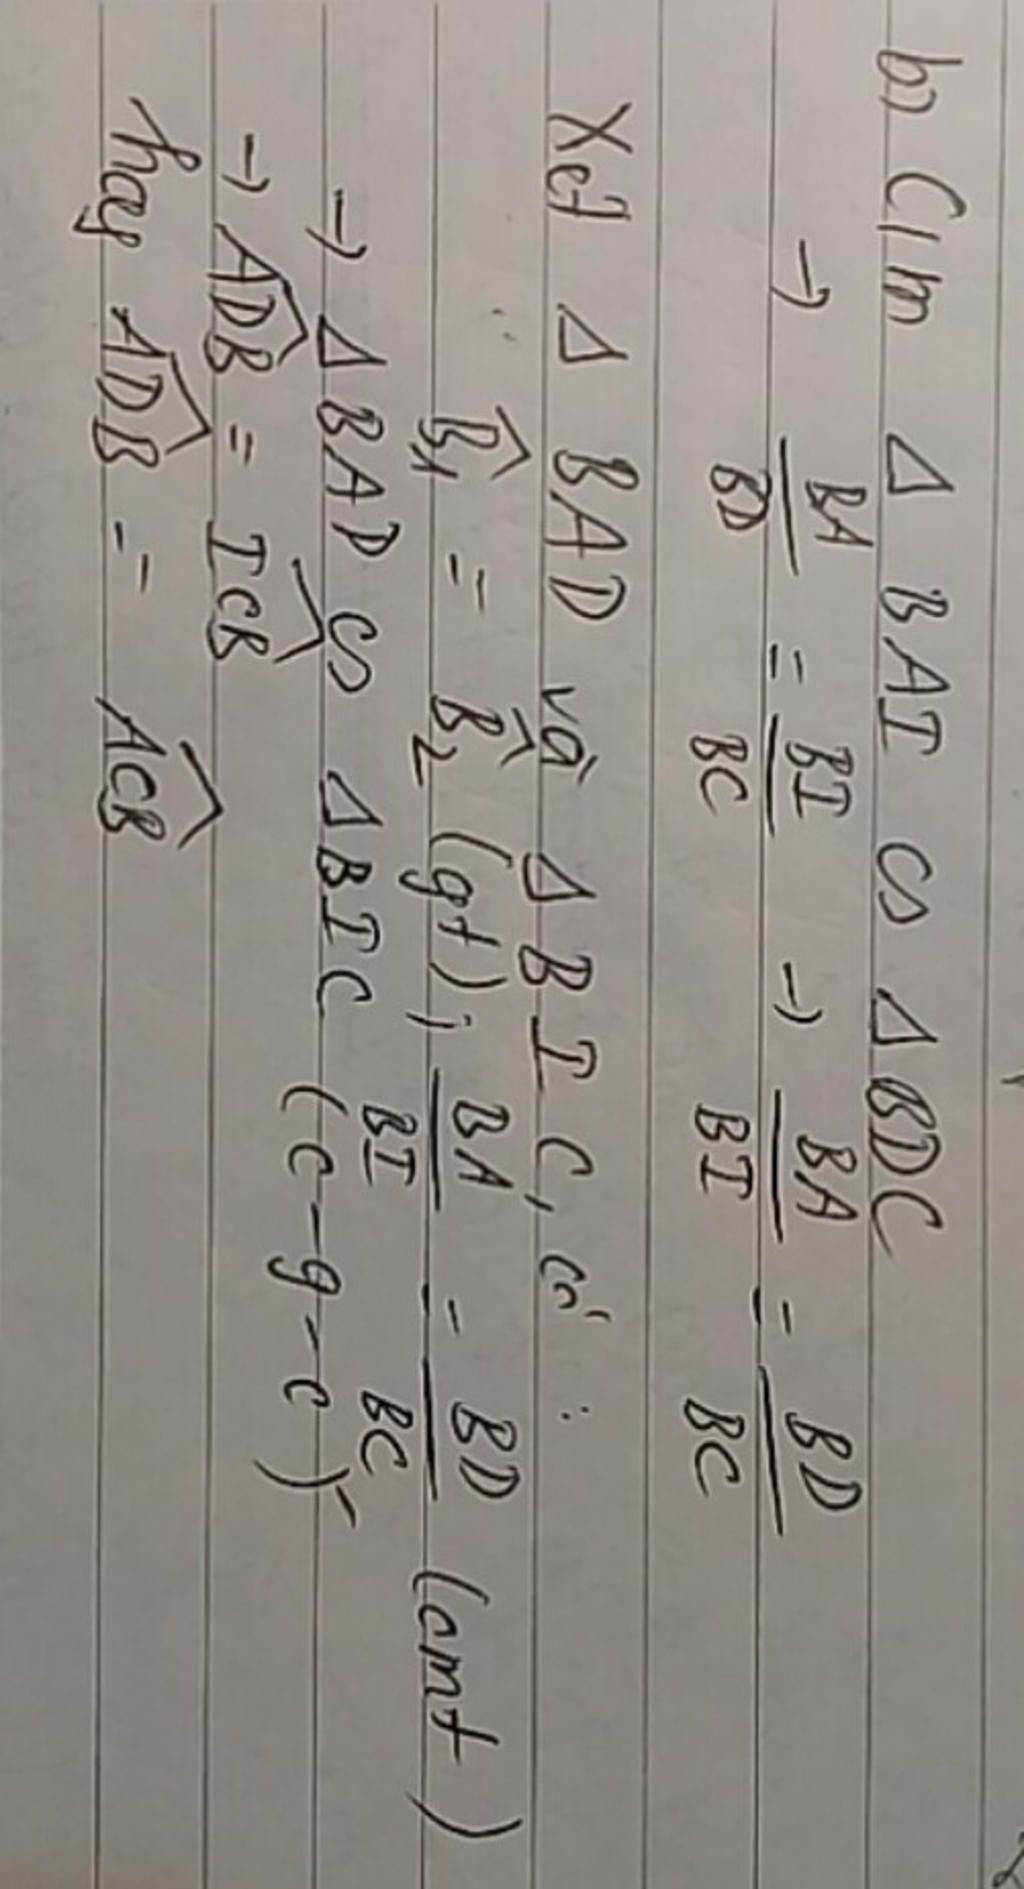 b) C/m Δ BAI ∽ Δ BDC
→ BA/BD = BI/BC → BA/BI = BD/BC
Xét Δ BAD và Δ BIC, có:
B̂₁ = B̂₂ (gt); BA/BI = BD/BC (cmt)
→ Δ BAD ∽ Δ BIC (c-g-c)
→ \widehat{ADB} = \widehat{ICB}
hay \widehat{ADB} = \widehat{ACB}